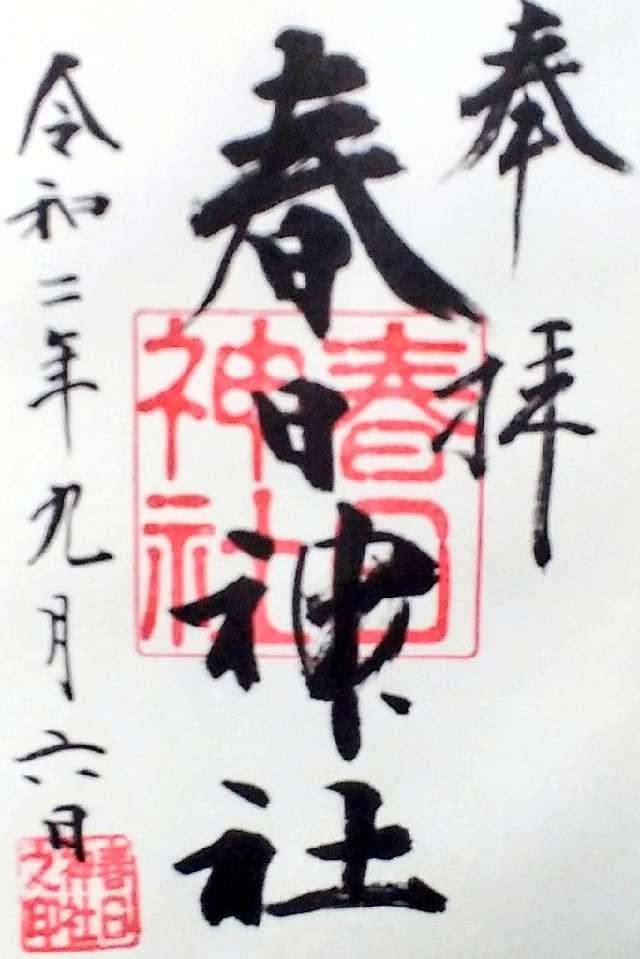 奉拝
春日神社
令和二年九月六日
春日
神社
春日
神社
之印